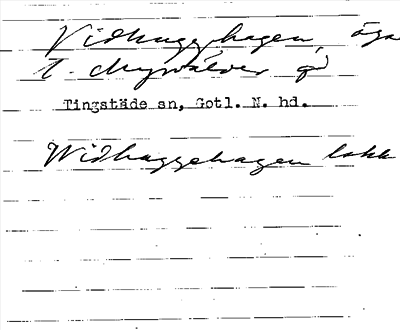 Vidhugghagen, äga
t. Myrvälder gd
Tingstäde sn, Gotl. N. hd.
Widhaggehagen